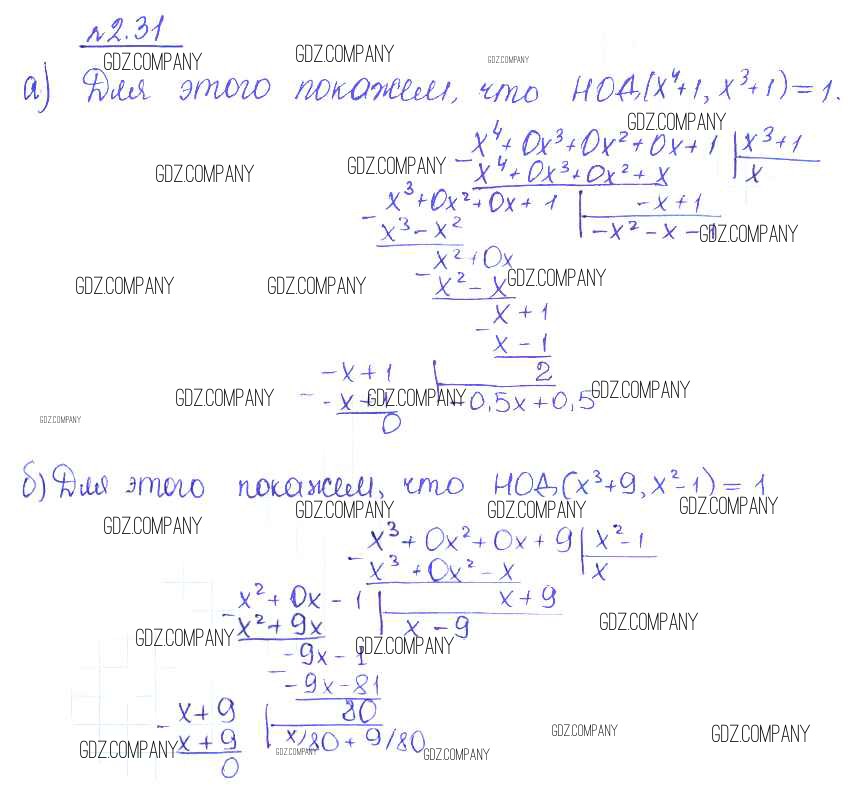 №2.31
GDZ.COMPANY GDZ.COMPANY GDZ.COMPANY
а) Для этого покажем, что НОД(x⁴+1, x³+1)=1.
GDZ.COMPANY
x⁴+0x³+0x²+0x+1 x³+1
GDZ.COMPANY GDZ.COMPANY - x⁴+0x³+0x²+x x
x³+0x²+0x+1 -x+1
- x³-x² -x²-x-1 GDZ.COMPANY
x²+0x
GDZ.COMPANY GDZ.COMPANY - x²-x GDZ.COMPANY
x+1
- x-1
-x+1 2
GDZ.COMPANY - -x+1 GDZ.COMPANY -0,5x+0,5 GDZ.COMPANY
GDZ.COMPANY 0
б) Для этого покажем, что НОД(x³+9, x²-1)=1
GDZ.COMPANY GDZ.COMPANY GDZ.COMPANY GDZ.COMPANY
x³+0x²+0x+9 x²-1
- x³+0x²-x x
x²+0x-1 x+9
- x²+9x x-9 GDZ.COMPANY
GDZ.COMPANY -9x-1 GDZ.COMPANY
- -9x-81
x+9 80
- x+9 x/80+9/80 GDZ.COMPANY GDZ.COMPANY
GDZ.COMPANY 0 GDZ.COMPANY GDZ.COMPANY